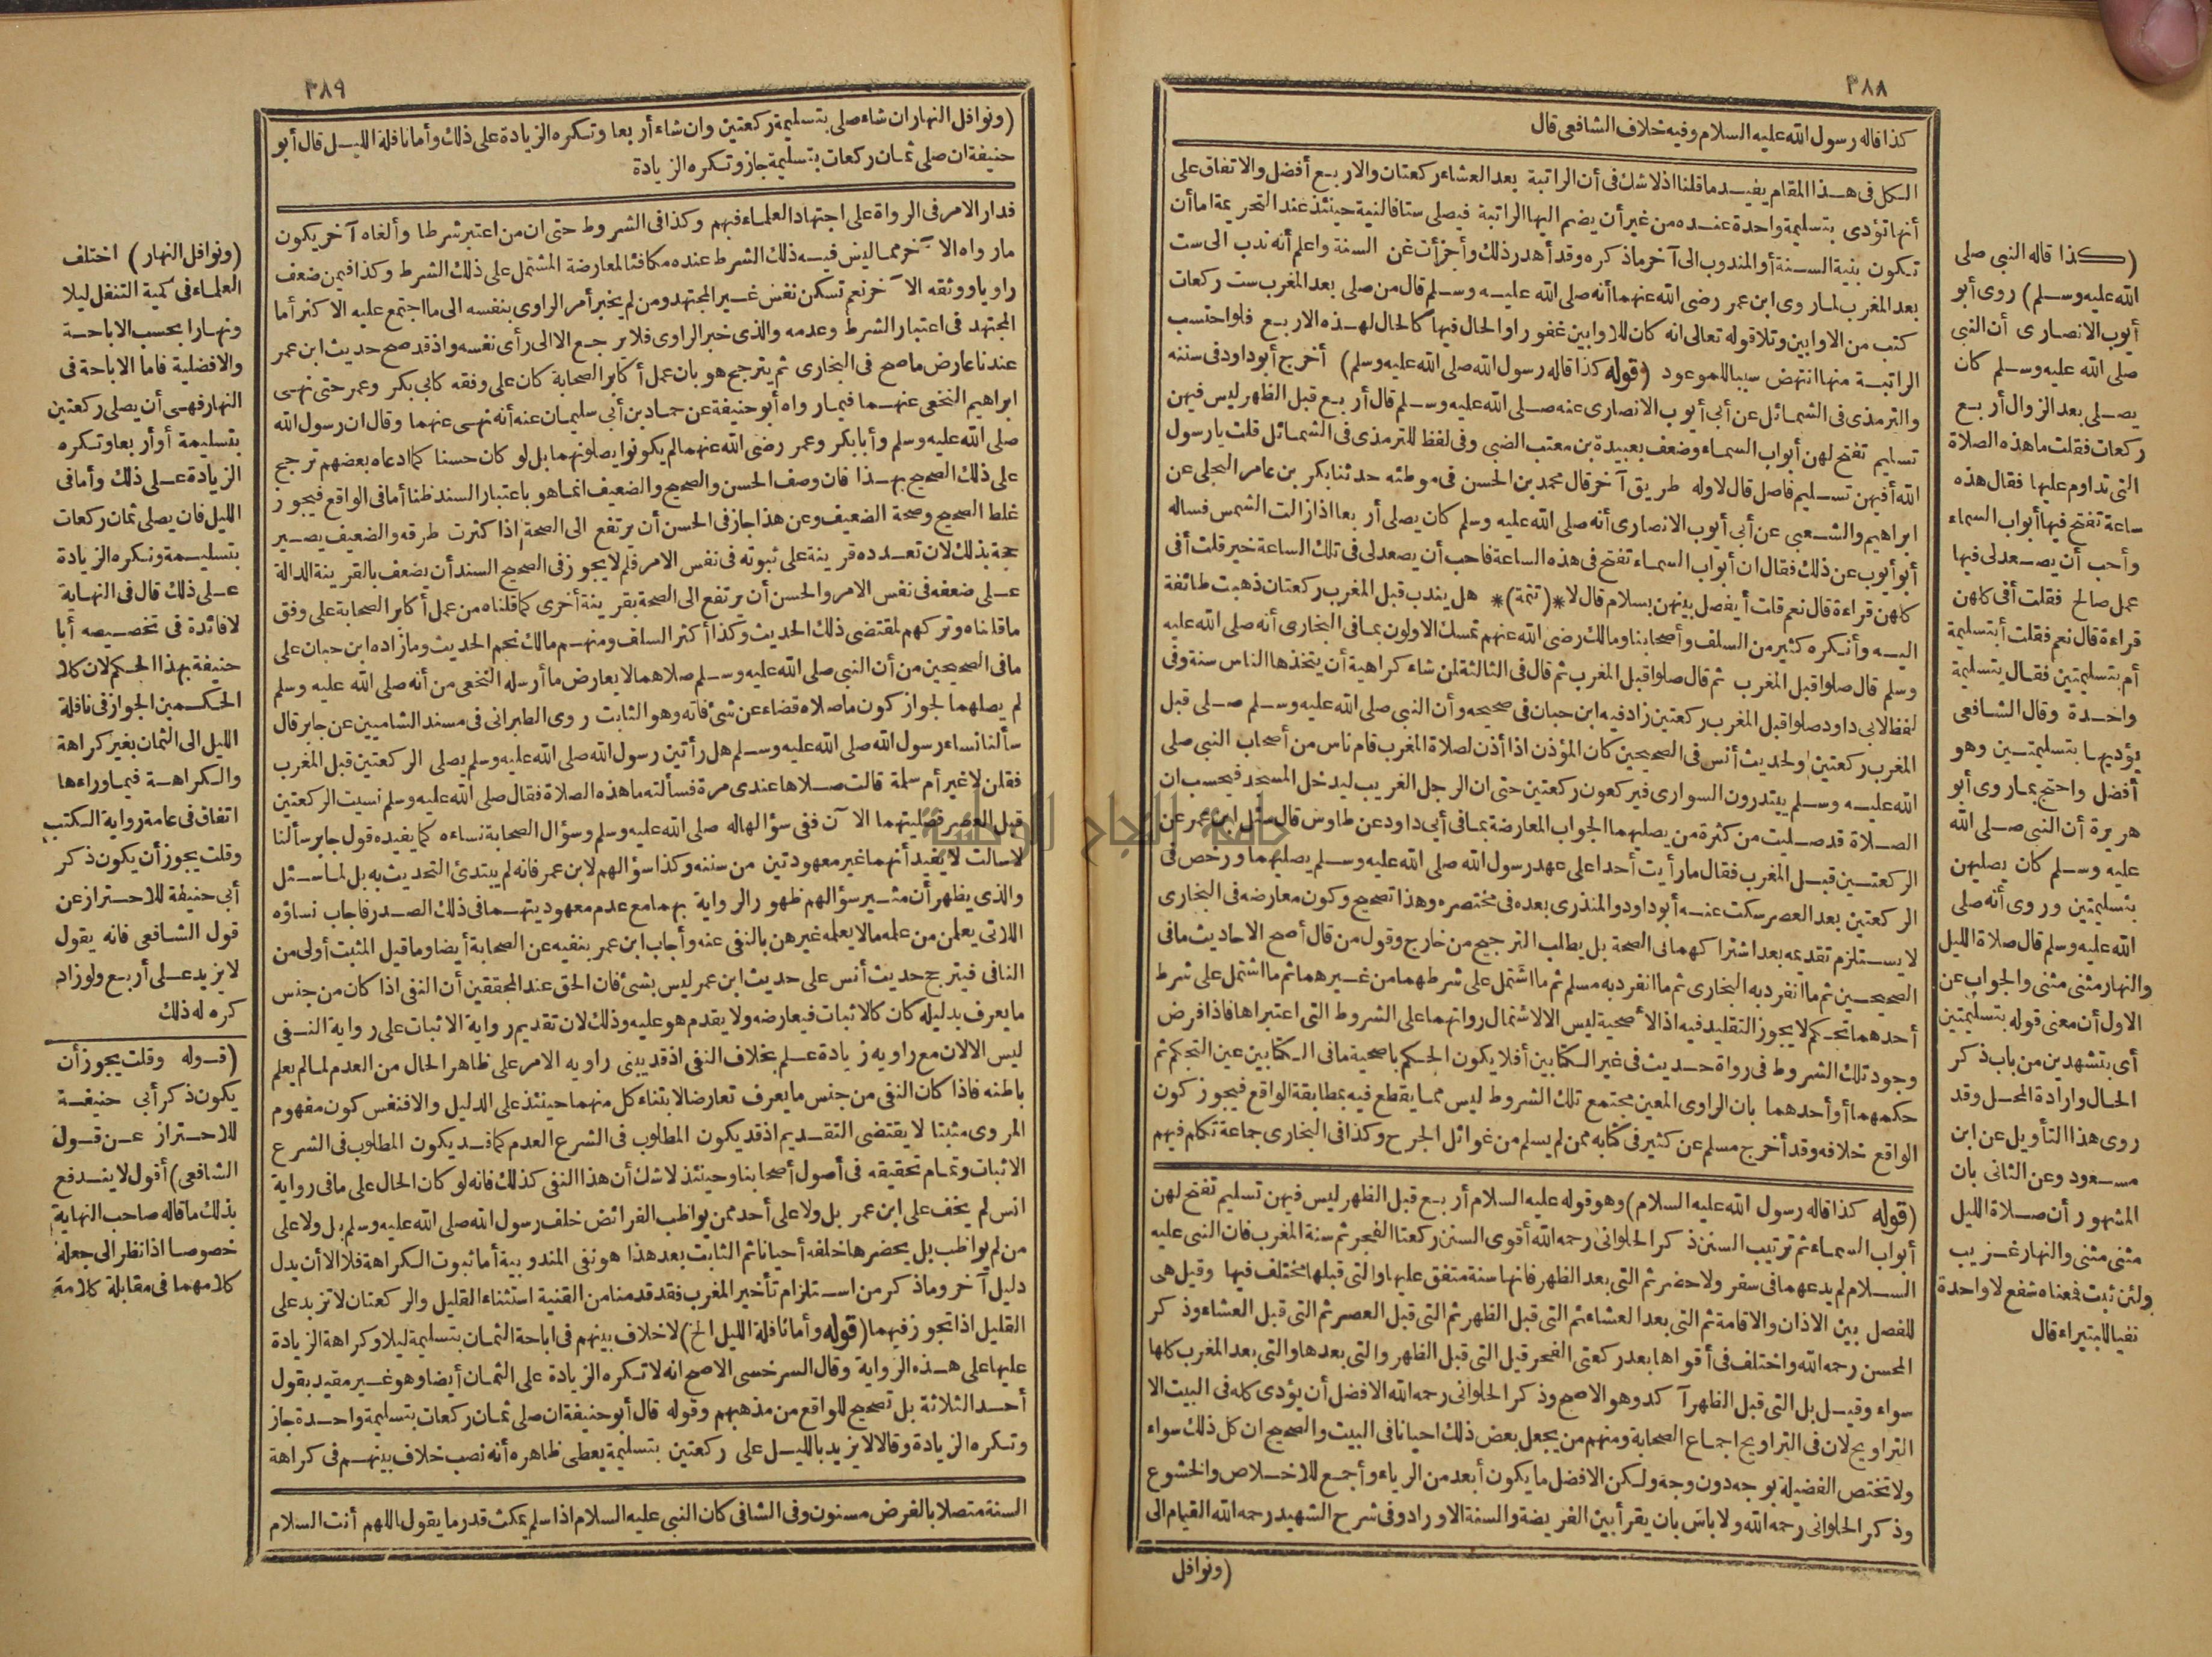 ٣٨٨
كذا قاله رسول الله عليه السلام وفيه خلاف الشافعى قال
الكل فى هذا المقام يفيد ما قلنا اذ لا شك فى أن الراتبة بعد العشاء ركعتان والاربع أفضل والاتفاق على
أنها تؤدى بتسليمة واحدة عنده من غير أن يضم اليها الراتبة فيصلى ستا فالنية حينئذ عند التحريمة اما أن
تكون بنية السنة أو المندوب الى آخر ما ذكره وقد أهدر ذلك وأجزأت عن السنة واعلم أنه ندب الى ست
بعد المغرب لما روى ابن عمر رضى الله عنهما أنه صلى الله عليه وسلم قال من صلى بعد المغرب ست ركعات
كتب من الاوابين وتلا قوله تعالى انه كان للاوابين غفورا والحال فيها كالحال لهذه الاربع فلو احتسب
الراتبة منها انتهض سببا للموعود (قوله كذا قاله رسول الله صلى الله عليه وسلم) أخرج أبو داود فى سننه
والترمذى فى الشمائل عن أبى أيوب الانصارى عنه صلى الله عليه وسلم قال أربع قبل الظهر ليس فيهن
تسليم تفتح لهن أبواب السماء وضعف بعبيدة بن معتب الضبى وفى لفظ للترمذى فى الشمائل قلت يا رسول
الله أفيهن تسليم فاصل قال لا وله طريق آخر قال محمد بن الحسن فى موطئه حدثنا بكر بن عامر البجلى عن
ابراهيم والشعبى عن أبى أيوب الانصارى أنه صلى الله عليه وسلم كان يصلى أربعا اذا زالت الشمس فساله
أبو أيوب عن ذلك فقال ان أبواب السماء تفتح فى هذه الساعة فاحب أن يصعد لى فى تلك الساعة خير قلت أفى
كلهن قراءة قال نعم قلت أيفصل بينهن بسلام قال لا *(تتمة)* هل يندب قبل المغرب ركعتان ذهبت طائفة
اليه وأنكره كثير من السلف وأصحابنا ومالك رضى الله عنهم تمسك الاولون بما فى البخارى أنه صلى الله عليه
وسلم قال صلوا قبل المغرب ثم قال صلوا قبل المغرب ثم قال فى الثالثة لمن شاء كراهية أن يتخذها الناس سنة وفى
لفظ لابى داود صلوا قبل المغرب ركعتين زاد فيه ابن حبان فى صحيحه وأن النبى صلى الله عليه وسلم صلى قبل
المغرب ركعتين ولحديث أنس فى الصحيحين كان المؤذن اذا أذن لصلاة المغرب قام ناس من أصحاب النبى صلى
الله عليه وسلم يبتدرون السوارى فيركعون ركعتين حتى ان الرجل الغريب ليدخل المسجد فيحسب ان
الصلاة قد صليت من كثرة من يصليهما الجواب المعارضة بما فى أبى داود عن طاوس قال سئل ابن عمر عن
الركعتين قبل المغرب فقال ما رأيت أحدا على عهد رسول الله صلى الله عليه وسلم يصليهما ورخص فى
الركعتين بعد العصر سكت عنه أبو داود والمنذرى بعده فى مختصره وهذا تصحيح وكون معارضه فى البخارى
لا يستلزم تقديمه بعد اشتراكهما فى الصحة بل يطلب الترجيح من خارج وقول من قال أصح الاحاديث ما فى
الصحيحين ثم ما انفرد به البخارى ثم ما انفرد به مسلم ثم ما اشتمل على شرطهما من غيرهما ثم ما اشتمل على شرط
أحدهما تحكم لا يجوز التقليد فيه اذ الأصحية ليس الا لاشتمال رواتهما على الشروط التى اعتبراها فاذا فرض
وجود تلك الشروط فى رواة حديث فى غير الكتابين أفلا يكون الحكم باصحية ما فى الكتابين عين التحكم ثم
حكمهما أو أحدهما بان الراوى المعين مجتمع تلك الشروط ليس مما يقطع فيه بمطابقة الواقع فيجوز كون
الواقع خلافه وقد أخرج مسلم عن كثير فى كتابه ممن لم يسلم من غوائل الجرح وكذا فى البخارى جماعة تكلم فيهم
(قوله كذا قاله رسول الله عليه السلام) وهو قوله عليه السلام أربع قبل الظهر ليس فيهن تسليم تفتح لهن
أبواب السماء ثم ترتيب السنن ذكر الحلوانى رحمه الله أقوى السنن ركعتا الفجر ثم سنة المغرب فان النبى عليه
السلام لم يدعهما فى سفر ولا حضر ثم التى بعد الظهر فانها سنة متفق عليها والتى قبلها مختلف فيها وقيل هى
للفصل بين الاذان والاقامة ثم التى بعد العشاء ثم التى قبل الظهر ثم التى قبل العصر ثم التى قبل العشاء وذكر
المحسن رحمه الله واختلف فى أقواها بعد ركعتى الفجر قيل التى قبل الظهر والتى بعدها والتى بعد المغرب كلها
سواء وقيل بل التى قبل الظهر آكد وهو الاصح وذكر الحلوانى رحمه الله الافضل أن يؤدى كله فى البيت الا
التراويح لان فى التراويح اجماع الصحابة ومنهم من يجعل بعض ذلك احيانا فى البيت والصحيح ان كل ذلك سواء
ولا تختص الفضيلة بوجه دون وجه ولكن الافضل ما يكون أبعد من الرياء وأجمع للاخلاص والخشوع
وذكر الحلوانى رحمه الله ولا باس بان يقرأ بين الفريضة والسنة الاوراد وفى شرح الشهيد رحمه الله القيام الى
(ونوافل
(كذا قاله النبى صلى
الله عليه وسلم) روى أبو
أيوب الانصارى أن النبى
صلى الله عليه وسلم كان
يصلى بعد الزوال أربع
ركعات فقلت ما هذه الصلاة
التى تداوم عليها فقال هذه
ساعة تفتح فيها أبواب السماء
وأحب أن يصعد لى فيها
عمل صالح فقلت أفى كلهن
قراءة قال نعم فقلت أبتسليمة
أم بتسليمتين فقال بتسليمة
واحدة وقال الشافعى
يؤديها بتسليمتين وهو
أفضل واحتج بما روى أبو
هريرة أن النبى صلى الله
عليه وسلم كان يصليهن
بتسليمتين وروى أنه صلى
الله عليه وسلم قال صلاة الليل
والنهار مثنى مثنى والجواب عن
الاول أن معنى قوله بتسليمتين
أى بتشهدين من باب ذكر
الحال وارادة المحل وقد
روى هذا التأويل عن ابن
مسعود وعن الثانى بان
المشهور أن صلاة الليل
مثنى مثنى والنهار غريب
ولئن ثبت فمعناه شفع لا واحدة
نفيا للبتيراء قال
٣٨٩
(ونوافل النهار ان شاء صلى بتسليمة ركعتين وان شاء أربعا وتكره الزيادة على ذلك وأما نافلة الليل قال أبو
حنيفة ان صلى ثمان ركعات بتسليمة جاز وتكره الزيادة
فدار الامر فى الرواة على اجتهاد العلماء فيهم وكذا فى الشروط حتى ان من اعتبر شرطا وألغاه آخر يكون
ما رواه الآخر مما ليس فيه ذلك الشرط عنده مكافئا لمعارضة المشتمل على ذلك الشرط وكذا فيمن ضعف
راويا ووثقه الآخر نعم تسكن نفس غير المجتهد ومن لم يخبر أمر الراوى بنفسه الى ما اجتمع عليه الاكثر أما
المجتهد فى اعتبار الشرط وعدمه والذى خبر الراوى فلا يرجع الا الى رأى نفسه واذ قد صح حديث ابن عمر
عندنا عارض ما صح فى البخارى ثم يترجح هو بان عمل أكابر الصحابة كان على وفقه كابى بكر وعمر حتى نهى
ابراهيم النخعى عنهما فيما رواه أبو حنيفة عن حماد بن أبى سليمان عنه أنه نهى عنهما وقال ان رسول الله
صلى الله عليه وسلم وأبا بكر وعمر رضى الله عنهما لم يكونوا يصلونهما بل لو كان حسنا كما ادعاه بعضهم ترجح
على ذلك الصحيح بهذا فان وصف الحسن والصحيح والضعيف انما هو باعتبار السند ظنا أما فى الواقع فيجوز
غلط الصحيح وصحة الضعيف وعن هذا جاز فى الحسن أن يرتفع الى الصحة اذا كثرت طرقه والضعيف يصير
حجة بذلك لان تعدده قرينة على ثبوته فى نفس الامر فلم لا يجوز فى الصحيح السند أن يضعف بالقرينة الدالة
على ضعفه فى نفس الامر والحسن أن يرتفع الى الصحة بقرينة أخرى كما قلناه من عمل أكابر الصحابة على وفق
ما قلناه وتركهم لمقتضى ذلك الحديث وكذا أكثر السلف ومنهم مالك نجم الحديث وما زاده ابن حبان على
ما فى الصحيحين من أن النبى صلى الله عليه وسلم صلاهما لا يعارض ما أرسله النخعى من أنه صلى الله عليه وسلم
لم يصلهما لجواز كون ما صلاه قضاء عن شئ فاته وهو الثابت روى الطبرانى فى مسند الشاميين عن جابر قال
سألنا نساء رسول الله صلى الله عليه وسلم هل رأيتن رسول الله صلى الله عليه وسلم يصلى الركعتين قبل المغرب
فقلن لا غير أم سلمة قالت صلاها عندى مرة فسألته ما هذه الصلاة فقال صلى الله عليه وسلم نسيت الركعتين
قبل العصر فصليتهما الآن ففى سؤالها له صلى الله عليه وسلم وسؤال الصحابة نساءه كما يفيده قول جابر سألنا
لا سالت لا يفيد أنهما غير معهودتين من سننه وكذا سؤالهم لابن عمر فانه لم يبتدئ التحديث به بل لما سئل
والذى يظهر أن مثير سؤالهم ظهور الرواية بهما مع عدم معهوديتهما فى ذلك الصدر فاجاب نساؤه
اللاتى يعلمن من علمه ما لا يعلمه غيرهن بالنفى عنه وأجاب ابن عمر بنفيه عن الصحابة أيضا وما قيل المثبت أولى من
النافى فيترجح حديث أنس على حديث ابن عمر ليس بشئ فان الحق عند المحققين أن النفى اذا كان من جنس
ما يعرف بدليله كان كالاثبات فيعارضه ولا يقدم هو عليه وذلك لان تقديم رواية الاثبات على رواية النفى
ليس الا لان مع راويه زيادة علم بخلاف النفى اذ قد يبنى راويه الامر على ظاهر الحال من العدم لما لم يعلم
باطنه فاذا كان النفى من جنس ما يعرف تعارضا لابتناء كل منهما حينئذ على الدليل والا فنفس كون مفهوم
المروى مثبتا لا يقتضى التقديم اذ قد يكون المطلوب فى الشرع العدم كما قد يكون المطلوب فى الشرع
الاثبات وتمام تحقيقه فى أصول أصحابنا وحينئذ لا شك أن هذا النفى كذلك فانه لو كان الحال على ما فى رواية
انس لم يخف على ابن عمر بل ولا على أحد ممن يواظب الفرائض خلف رسول الله صلى الله عليه وسلم بل ولا على
من لم يواظب بل يحضرها خلفه أحيانا ثم الثابت بعد هذا هو نفى المندوبية أما ثبوت الكراهة فلا الا أن يدل
دليل آخر وما ذكر من استلزام تأخير المغرب فقد قدمنا من القنية استثناء القليل والركعتان لا تزيد على
القليل اذا تجوز فيهما (قوله وأما نافلة الليل الخ) لا خلاف بينهم فى اباحة الثمان بتسليمة ليلا وكراهة الزيادة
عليها على هذه الرواية وقال السرخسى الاصح انه لا تكره الزيادة على الثمان أيضا وهو غير مقيد بقول
أحد الثلاثة بل تصحيح للواقع من مذهبهم وقوله قال أبو حنيفة ان صلى ثمان ركعات بتسليمة واحدة جاز
وتكره الزيادة وقالا لا يزيد بالليل على ركعتين بتسليمة يعطى ظاهره أنه نصب خلاف بينهم فى كراهة
السنة متصلا بالفرض مسنون وفى الشافى كان النبى عليه السلام اذا سلم يمكث قدر ما يقول اللهم أنت السلام
(ونوافل النهار) اختلف
العلماء فى كمية التنفل ليلا
ونهارا بحسب الاباحة
والافضلية فاما الاباحة فى
النهار فهى أن يصلى ركعتين
بتسليمة أو أربعا وتكره
الزيادة على ذلك وأما فى
الليل فان يصلى ثمان ركعات
بتسليمة وتكره الزيادة
على ذلك قال فى النهاية
لا فائدة فى تخصيصه أبا
حنيفة بهذا الحكم لان كلا
الحكمين الجواز فى نافلة
الليل الى الثمان بغير كراهة
والكراهة فيما وراءها
اتفاق فى عامة رواية الكتب
وقلت يجوز أن يكون ذكر
أبى حنيفة للاحتراز عن
قول الشافعى فانه يقول
لا يزيد على أربع ولو زاد
كره له ذلك
(قوله وقلت يجوز أن
يكون ذكر أبى حنيفة
للاحتراز عن قول
الشافعى) أقول لا يندفع
بذلك ما قاله صاحب النهاية
خصوصا اذا نظر الى جعله
كلامهما فى مقابلة كلامه
جامعة النجاح الوطنية